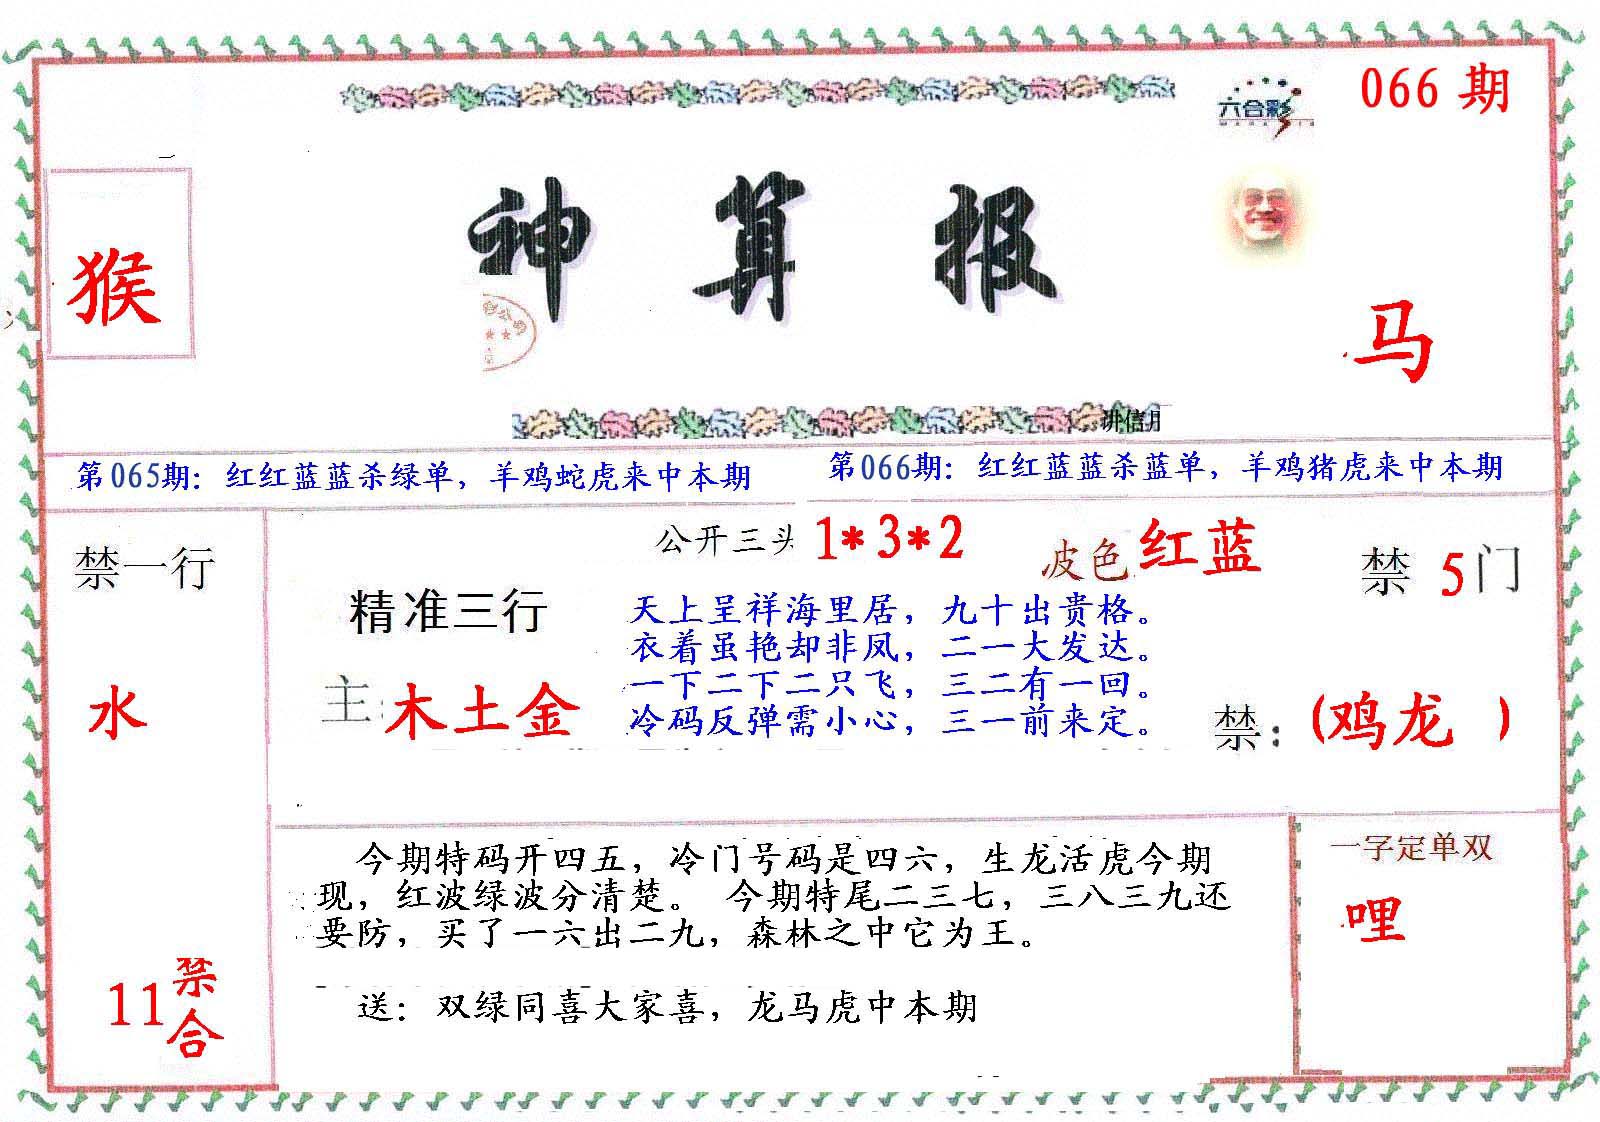 066 期
六合彩
神 算 报
猴
马
讲信用
第065期：红红蓝蓝杀绿单，羊鸡蛇虎来中本期
第066期：红红蓝蓝杀蓝单，羊鸡猪虎来中本期
禁一行
水
11禁合
公开三头 1*3*2
波色 红蓝
禁 5 门
精准三行
主:木土金
天上呈祥海里居，九十出贵格。
衣着虽艳却非凤，二一大发达。
一下二下二只飞，三二有一回。
冷码反弹需小心，三一前来定。
禁:(鸡龙 )
今期特码开四五，冷门号码是四六，生龙活虎今期
现，红波绿波分清楚。 今期特尾二三七，三八三九还
要防，买了一六出二九，森林之中它为王。
送：双绿同喜大家喜，龙马虎中本期
一字定单双
哩